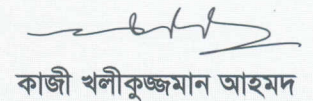 কাজী খলীকুজ্জমান আহমদ